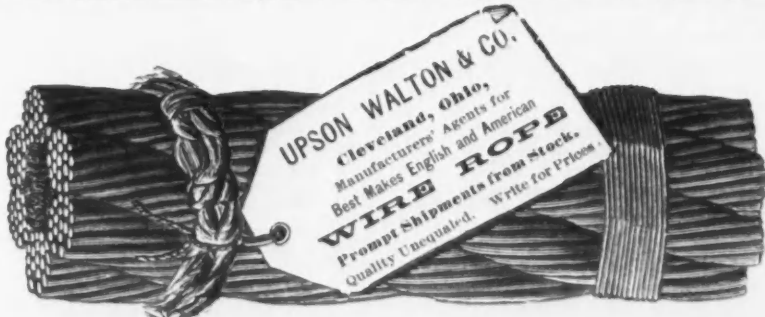 UPSON WALTON & CO.
Cleveland, Ohio,
Manufacturers' Agents for
Best Makes English and American
WIRE ROPE
Prompt Shipments from Stock.
Quality Unequaled. Write for Prices.